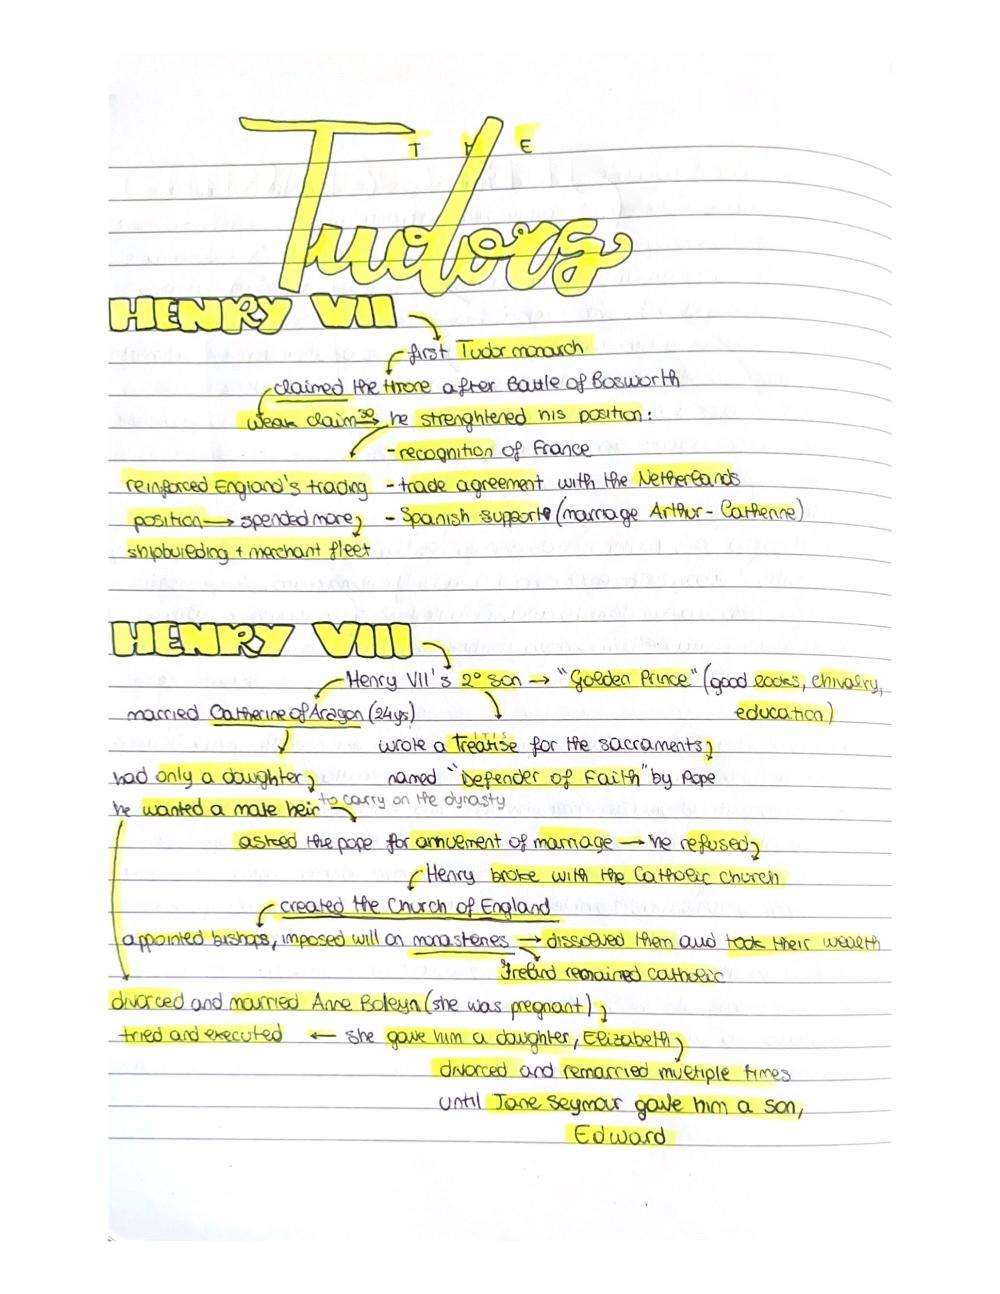 THE
Tudors
HENRY VII
first Tudor monarch
claimed the throne after Battle of Bosworth
weak claim so he strenghtened his position:
- recognition of France
reinforced England's trading - trade agreement with the Netherlands
position → spended more - Spanish support (marriage Arthur - Catherine)
shipbuilding + merchant fleet
HENRY VIII
Henry VII's 2° son → "Golden Prince" (good looks, chivalry,
married Catherine of Aragon (24ys) education)
wrote a treatise for the sacraments
had only a daughter named "Defender of Faith" by Pope
he wanted a male heir to carry on the dynasty
asked the pope for annulement of marriage → he refused
Henry broke with the Catholic church
created the Church of England
appointed bishops, imposed will on monasteries → dissolved them and took their wealth
Ireland remained catholic
divorced and married Anne Boleyn (she was pregnant)
tried and executed ← she gave him a daughter, Elizabeth
divorced and remarried multiple times
until Jane Seymour gave him a son,
Edward